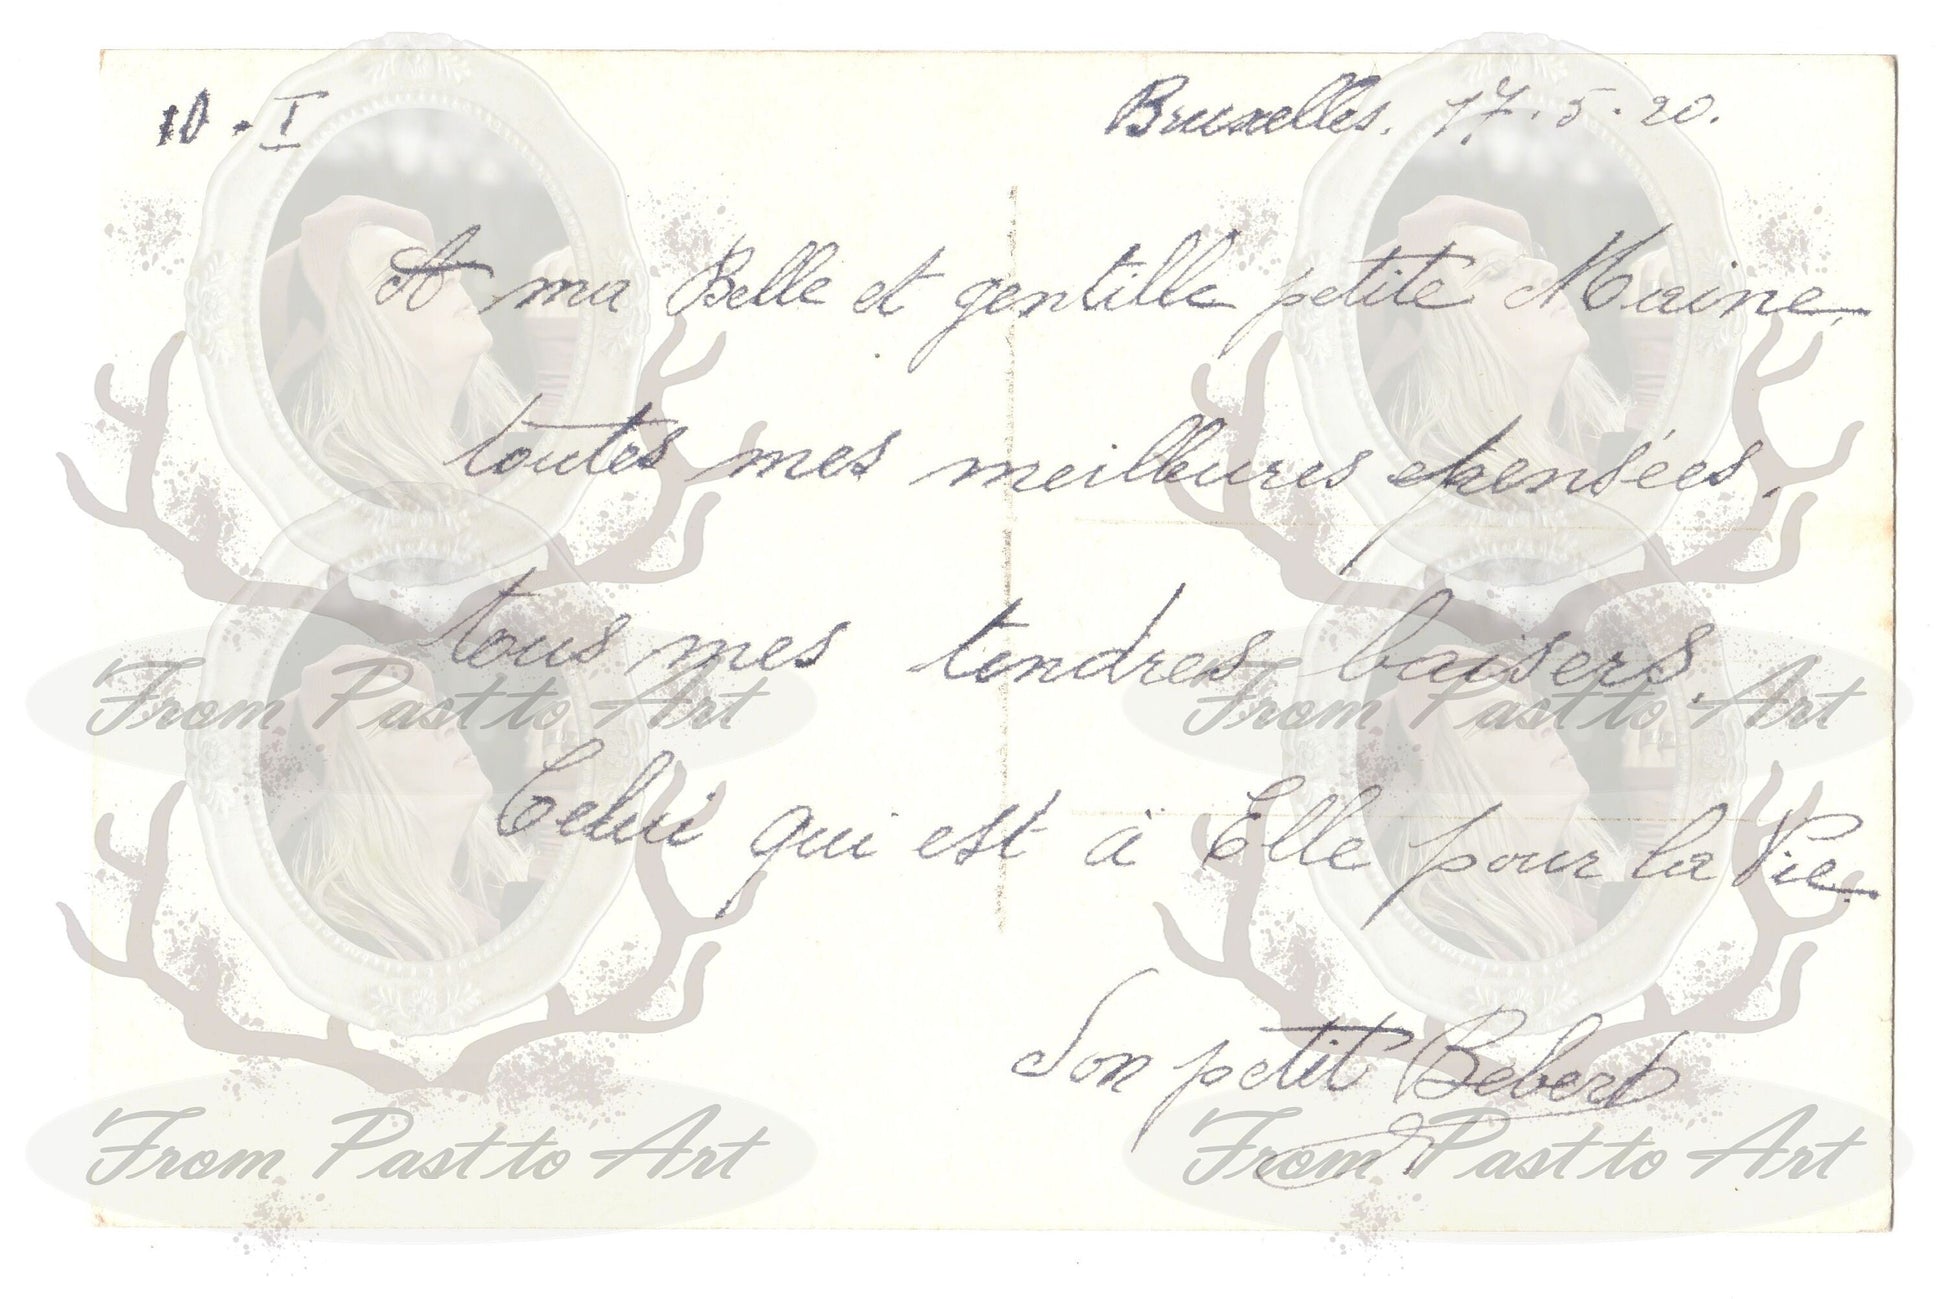 10 - I
Bruxelles. 17.5.20.
A ma Belle et gentille petite Maine.
toutes mes meilleures pensées.
tous mes tendres baisers.
Celui qui est à Elle pour la Vie.
Son petit Bebert
From Past to Art
From Past to Art
From Past to Art
From Past to Art